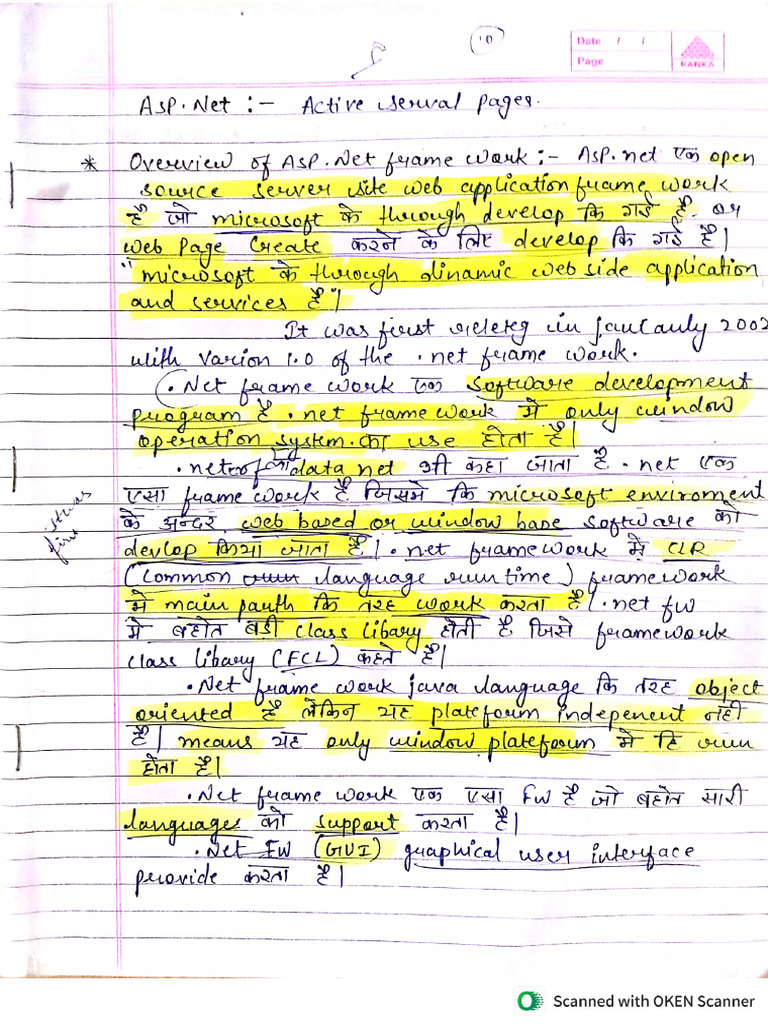 10
Date / /
Page
KANKA
Asp.Net :- Active serval pages.
* Overview of Asp.Net frame work :- Asp.net एक open
source server site web application frame work
है जो microsoft के through develop कि गई है. or
web Page Create करने के लिए develop कि गई है।
"microsoft के through dinamic web side application
and services है"।
It was first releteg in jancauly 2002
with varion 1.0 of the .net frame work.
(.Net frame work एक software development
program है .net frame work में only window
operation system.का use होता है।
.net को data net भी कहा जाता है. .net एक
एसा frame work है जिसमे कि microsoft enviroment
के अन्दर web based or window base software को
devlop किया जाता है। .net framework में CLR
(common language run time) framework
में main parth कि तरह work करता है। .net fw
में बहोत बडी class libary होती है जिसे framework
class libary (FCL) कहते है।
.Net frame work java language कि तरह object
oriented है लेकिन यह plateform indepenent नही
है। means यह only window plateform में हि run
होता है।
.Net frame work एक एसा FW है जो बहोत सारी
languages को support करता है।
.Net FW (GUI) graphical user interface
provide करता है।
Scanned with OKEN Scanner